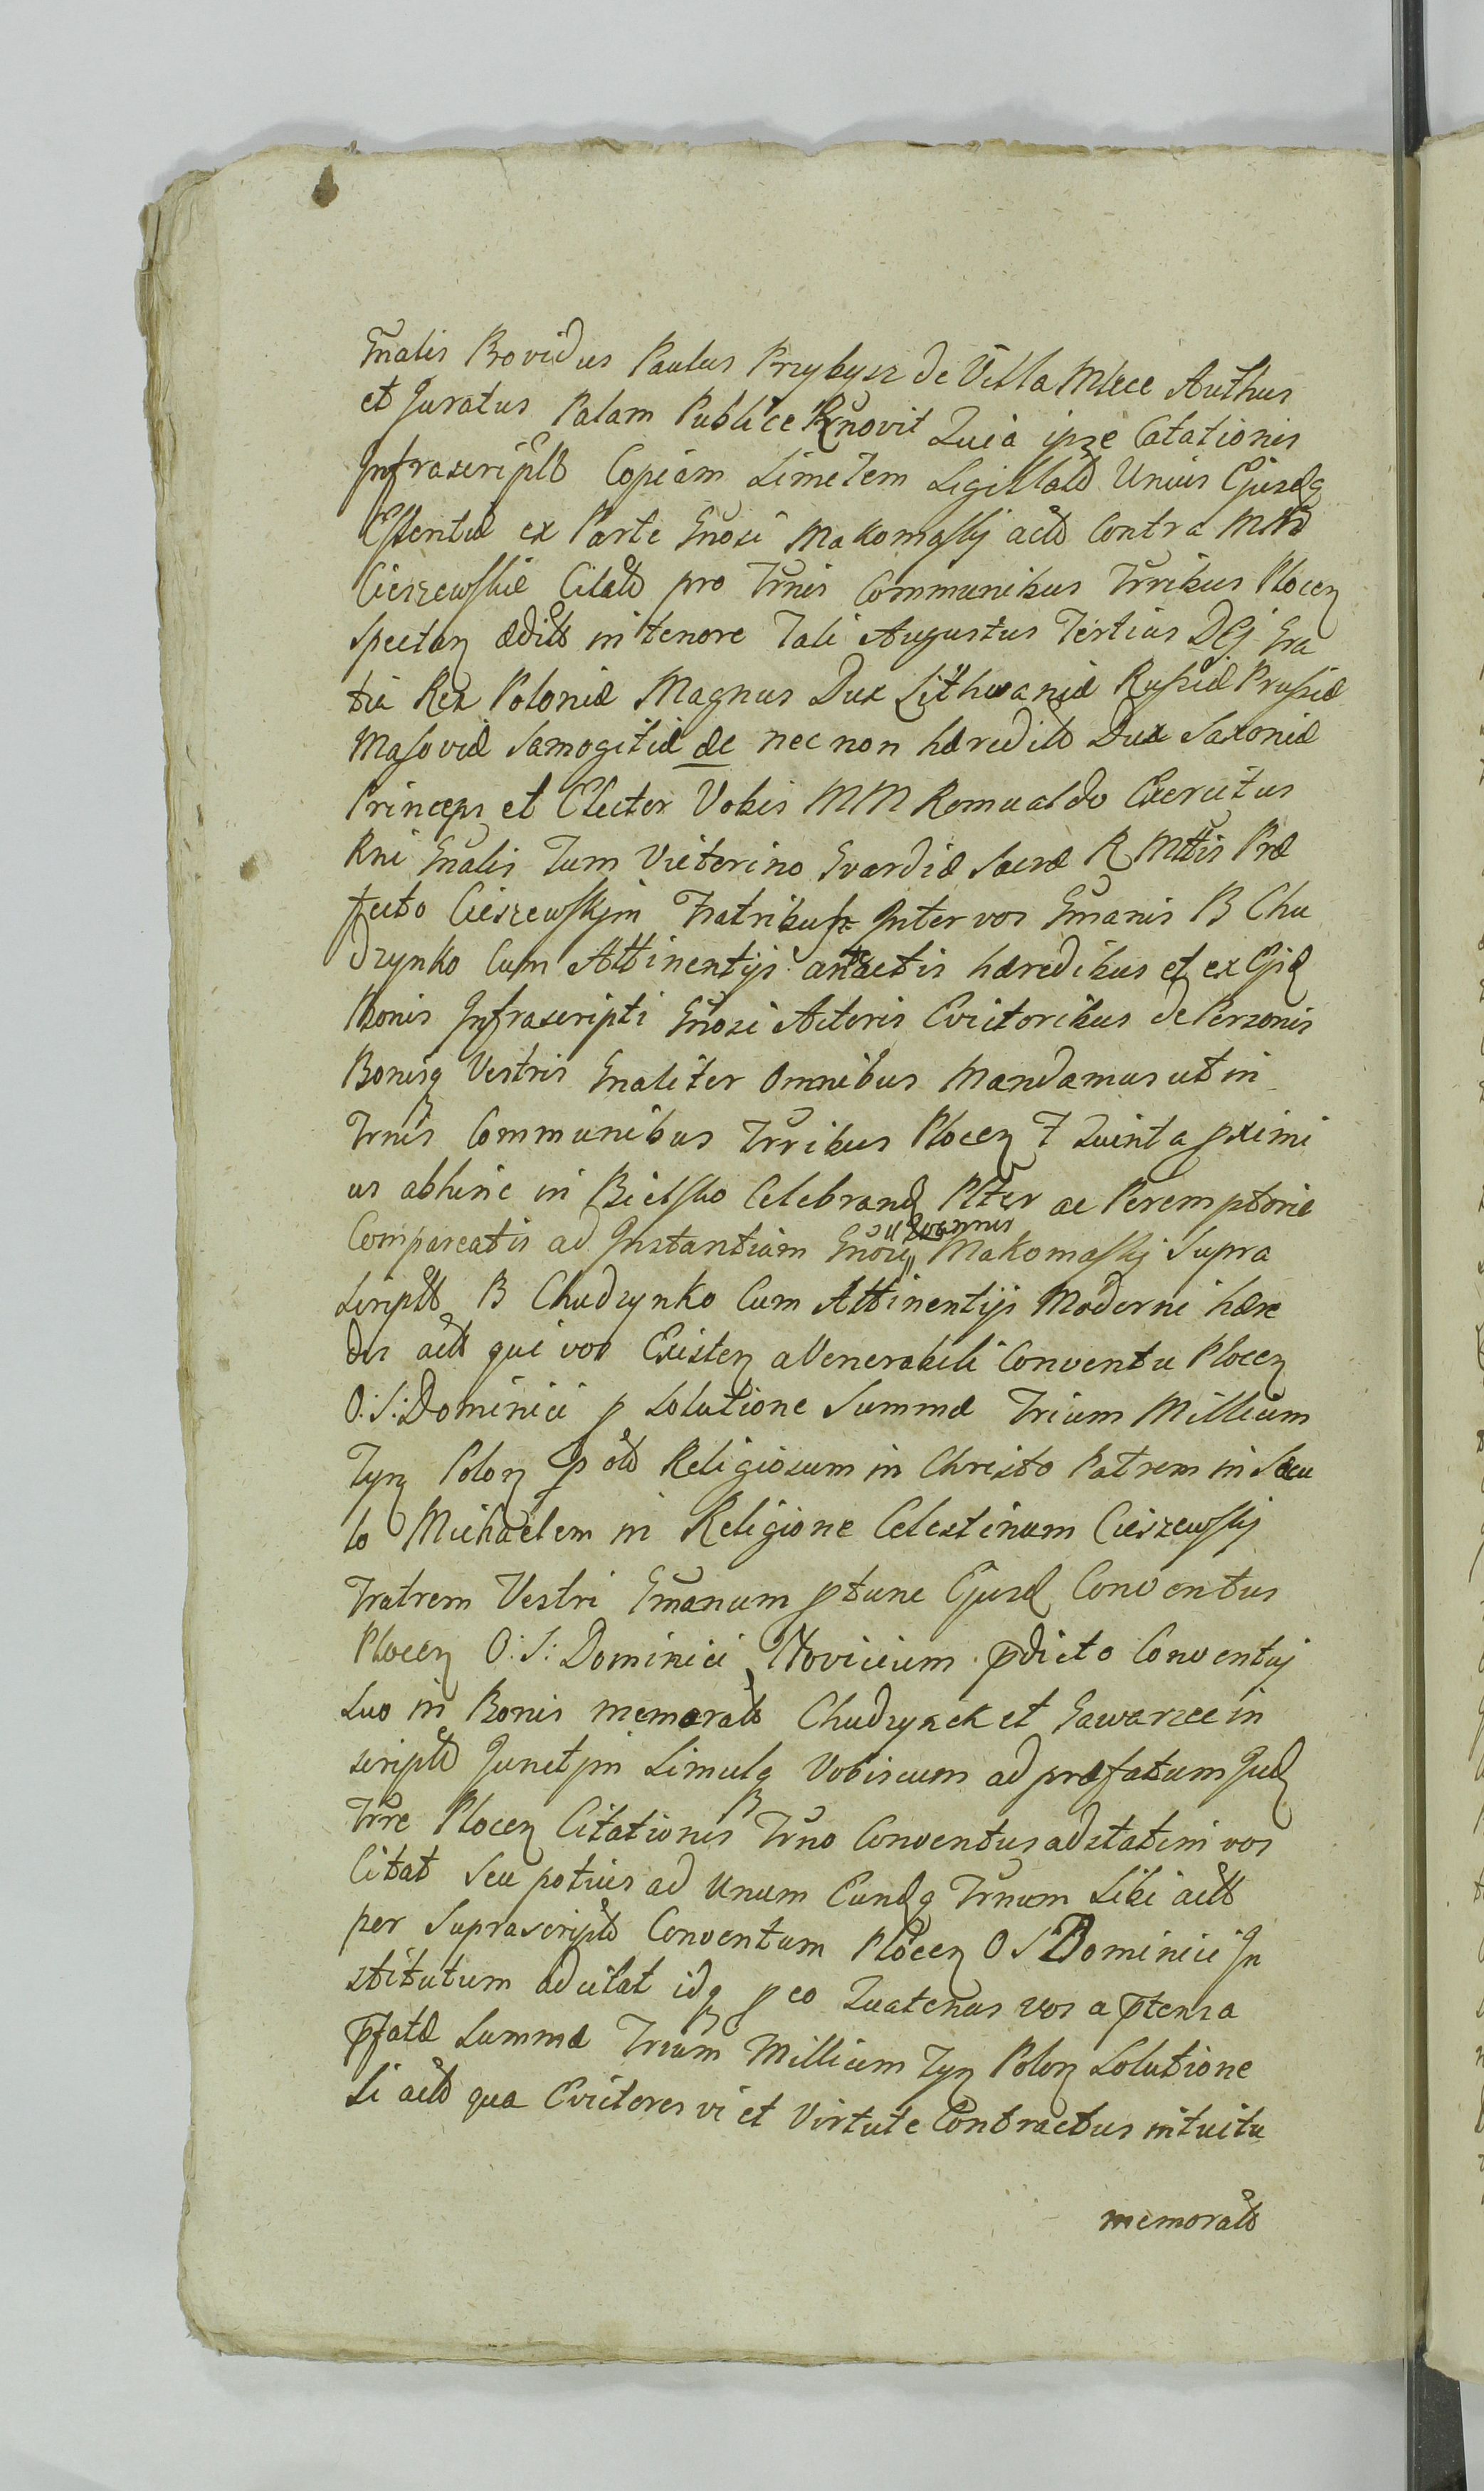 Gnalis Providus Paulus Przybysz de Villa Mlece Authus
et Juratus Palam Publice Rnovit Quia ipse Catationis
Infrascriptt Copiam Simitem Sigillatt Unius Ejusdq
Essentiæ ex Parte Gnosi Makomaskj actt Contra MM
Cieszewskie Citatt pro Trnis Communibus Trribus Plocen
Spectan ædditt in tenore Tali Augustus Tertius DEj Gra
tia Rex Poloniæ Magnus Dux Lithwaniæ Russiæ Prussiæ
Masoviæ Samogitiæ &c nec non hæreditt Dux Saxoniæ
Princeps et Elector Vobis MM Romualdo Exercitus
Rni Gnalis Tum Victorino Gvardiæ Sacræ R Mttis Præ
fecto Cieszewskjm Fratribus Inter vos Gmanis B Chu
dzynko Cum Attinentijs hæredibus et ex Ejsd
Bonis Infrascripti Gnosi Actoris Evictoribus de Personis
Bonisq Vestris Gnaliter Omnibus Mandamus ut in
Trnis Communibus Trribus Plocen F Quinta pximi
us abhinc in Bielsko Celebrand Plter ac Peremptorie
Compareatis ad Instantiam Gnosi Makomaskj Supra
Scriptt B Chudzynko Cum Attinentijs Moderni hære
dis actt qui vos Existen a Venerabili Conventu Plocen
O: S: Dominici p Solutione Summæ Trium Millium
Tyn Polon p Religiosum in Christo Patrem in Sæcu
lo Michaëlem in Religione Celestinum Cieszewskj
Fratrem Vestri Gmanum ptunc Ejusd Conventus
Plocen O: S: Dominici Novicium pdicto Conventuj
Suo in Bonis memoratt Chudzynek et Gawarzec in
scriptt Junctjm Simulq Vobiscum ad præfatum Jud
Trre Plocen Citationis Trno Conventus adstatim vos
Citat Seu potius ad Unum Eundq Trnum Sibi actt
per Suprascriptt Conventum Plocen O S Dominici In
stitutum adcitat idq p eo Quatenus vos a ptensa
pfatæ Summæ Trium Millium Tyn Polon Solutione
Si actt qua Evictores vi et Virtute Contractus intuitu
memoratt